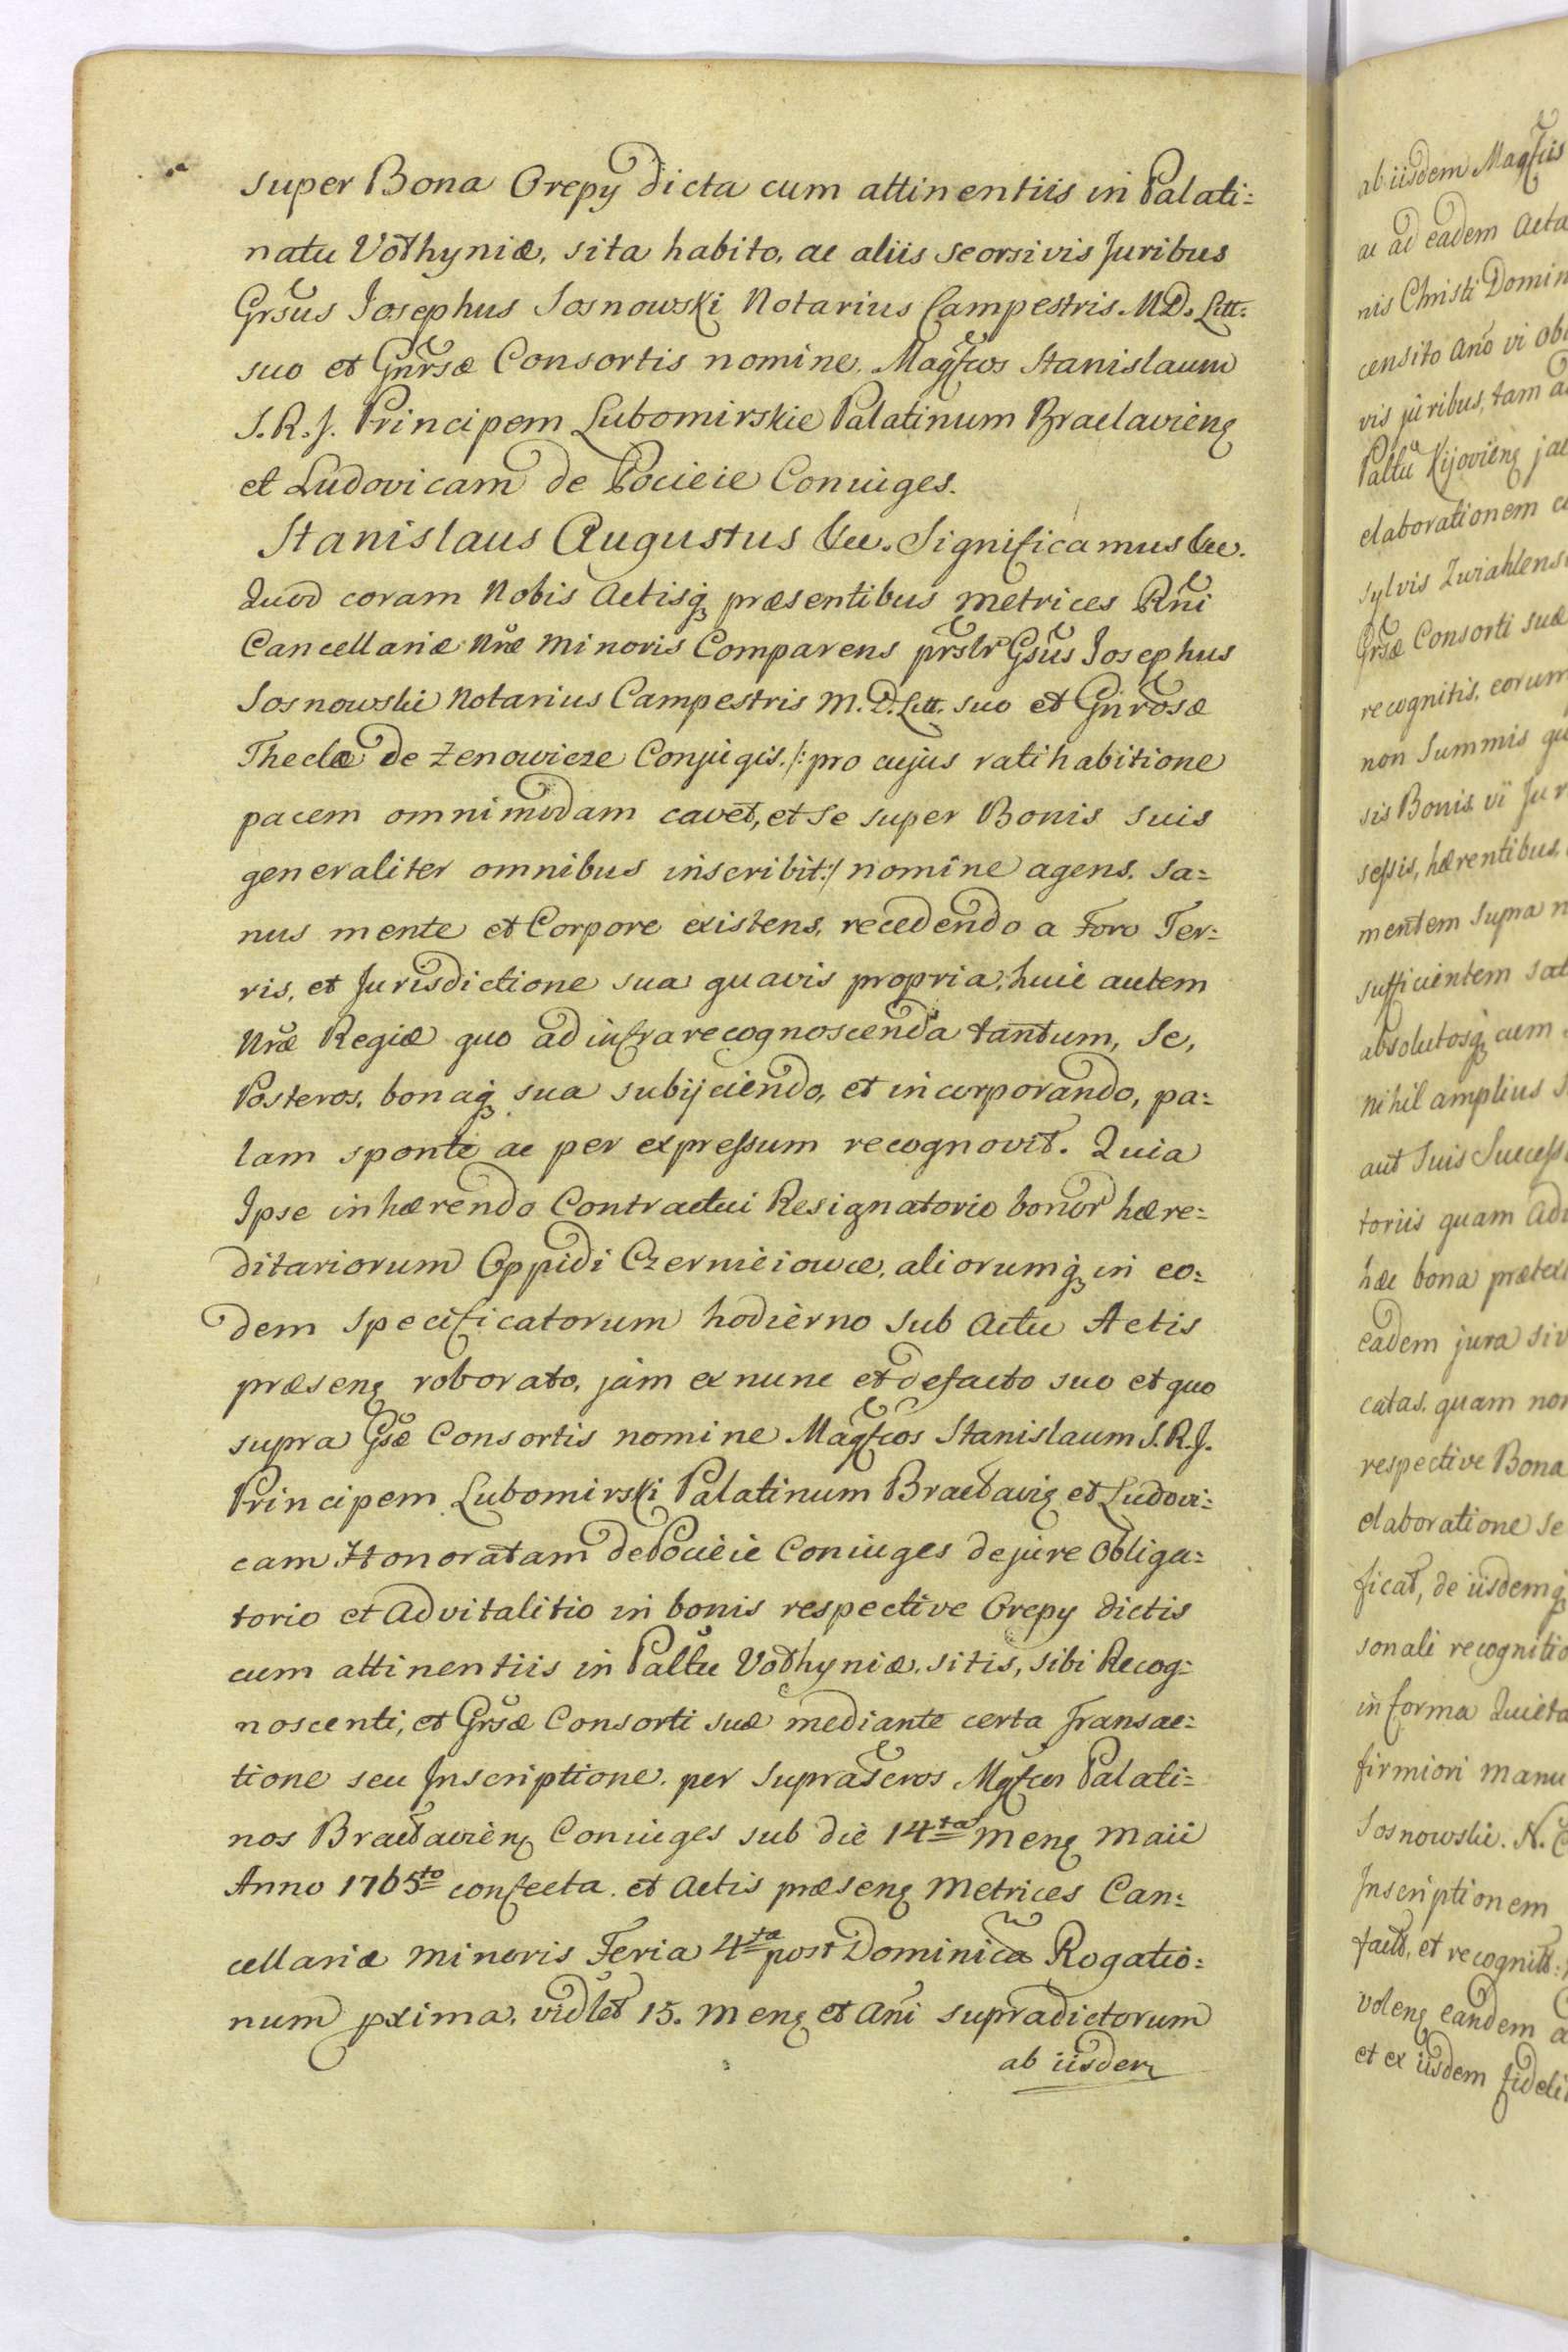 super Bona Orepy dicta cum attinentiis in Palati=
natu Volhyniæ, sita habito, ac aliis seorsivis Juribus
Grsus Josephus Sosnowski Notarius Campestris M.D. Litt.
suo et Gnrsæ Consortis nomine. Magfcos Stanislaum
S.R.J. Principem Lubomirskie Palatinum Braclavienς
et Ludovicam de Pocieie Coniuges.
Stanislaus Augustus &cc. Significamus &cc.
Quod coram Nobis Actisq3 præsentibus Metrices Rni
Cancellariæ Nræ Minoris Comparens prslr Gsus Josephus
Sosnowski Notarius Campestris M.D. Litt. suo et Gnrosæ
Theclæ de Zenowicze Conjugis. /: pro cujus ratihabitione
pacem omnimodam cavet, et se super Bonis suis
generaliter omnibus inscribit :/ nomine agens. sa=
nus mente et Corpore existens, recedendo a Foro Ter=
ris, et Jurisdictione sua quavis propria, huic autem
Nræ Regiæ quo ad infra recognoscenda tantum, se,
Posteros, bonaq3 sua subijciendo, et incorporando, pa=
lam sponte ac per expressum recognovit. Quia
Ipse inhærendo Contractui Resignatorio bonor hære=
ditariorum Oppidi Czernieiowce, aliorumq3 in eo=
dem specificatorum hodierno sub Actu Actis
præsenς roborato, jam ex nunc et defacto suo et quo
supra Gsæ Consortis nomine Magfcos Stanislaum S.R.J.
Principem Lubomirski Palatinum Braclaviς et Ludovi=
cam Honoratam de Pocieie Coniuges de jure Obliga=
torio et Advitalitio in bonis respective Orepy dictis
cum attinentiis in Paltu Volhyniæ, sitis, sibi Recog=
noscenti, et Grsæ Consorti suæ mediante certa Transac=
tione seu Inscriptione. per suprascros Mgfcos Palati=
nos Braclavienς Coniuges sub die 14ta Menς Maii
Anno 1765to confecta. et Actis præsenς Metrices Can=
cellariæ Minoris Feria 4ta post Dominica Rogatio=
num pxima, vidlet 15. Menς et Ani supradictorum
ab iisdem
ab iisdem Magfcis
ac ad eadem Acta
nis Christi Domin
censito Ano vi Ob
vis juribus, tam a
Paltu Kijovienς jac
elaborationem c
sylvis Zwiahlens
Grsæ Consorti suæ
recognitis, eorum
non Summis qu
sis Bonis vi Jur
sessis, hærentibus
mentem supra n
sufficientem sat
absolutosq3 cum
nihil amplius s
aut suis Success
toriis quam Adv
hæc bona prætex
eadem jura siv
catas, quam non
respective Bona
elaboratione se
ficat, de iisdemq3
sonali recognitio
in forma Quieta
firmiori manu
Sosnowski. N. C
Inscriptionem
factt, et recognitt
volenς eandem a
et ex iisdem fideli